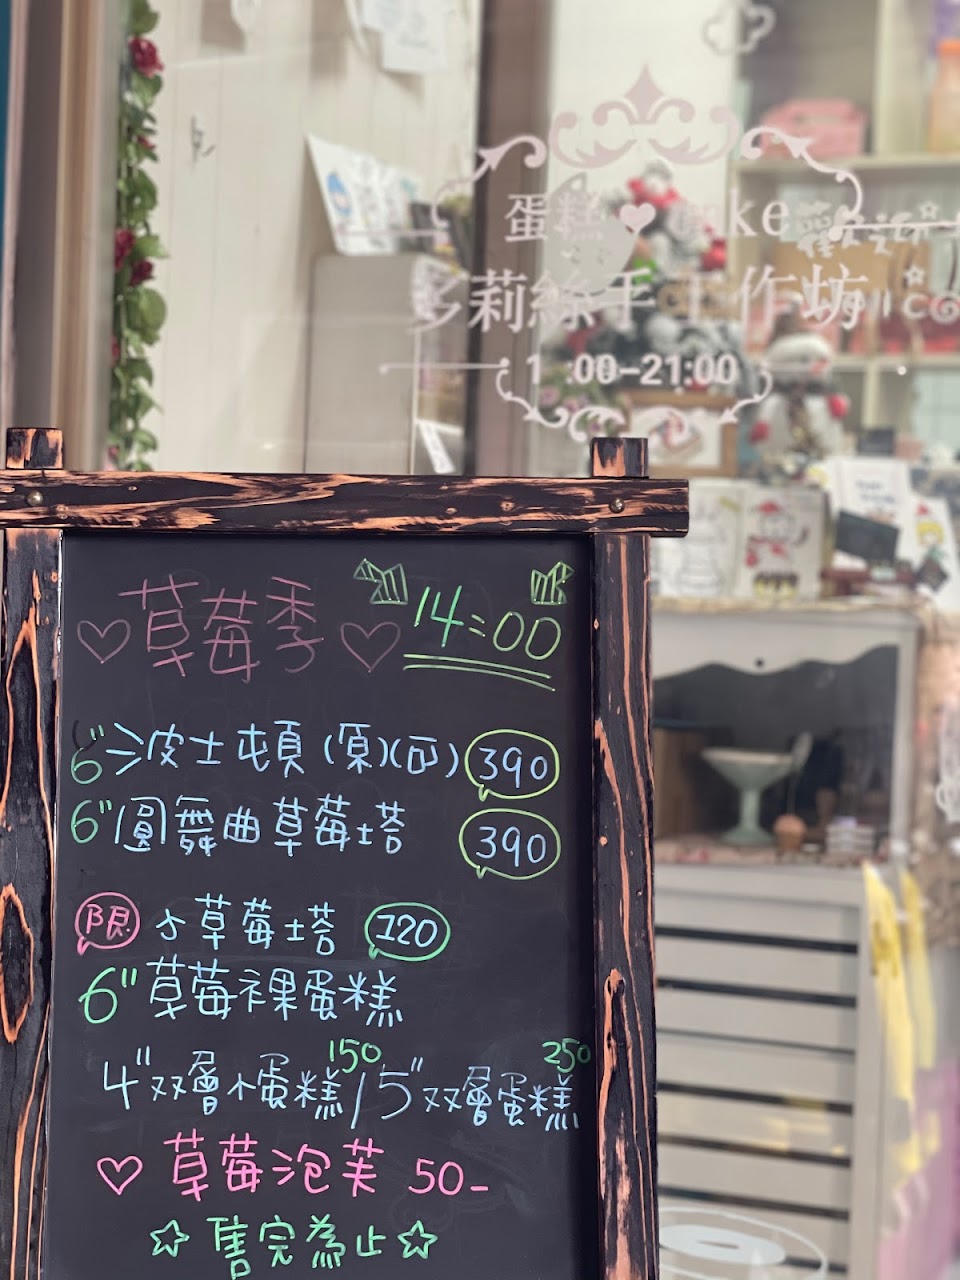 蛋糕♥ cake
多莉絲手工作坊
:00-21:00
♡草莓季♡ 14:00
6"皮士頓(原)(可) 390
6"圓舞曲草莓塔 390
限 小草莓塔 120
6"草莓裸蛋糕
4"双層小蛋糕 150 / 5"双層蛋糕 250
♡草莓泡芙 50-
☆售完為止☆